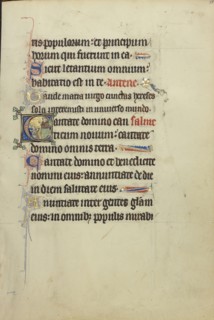 tis populorum: et principum
eorum qui fuerunt in ea.
Sicut letantium omnium:
habitatio est in te.
Gaude maria virgo cunctas hereses
sola interemisti in universo mundo.
Cantate domino can
ticum novum: cantate
domino omnis terra.
Cantate domino et benedicite
nomini eius: annunciate de die
in diem salutare eius.
Annunciate inter gentes glam
eius: in omnibz populis mirabi